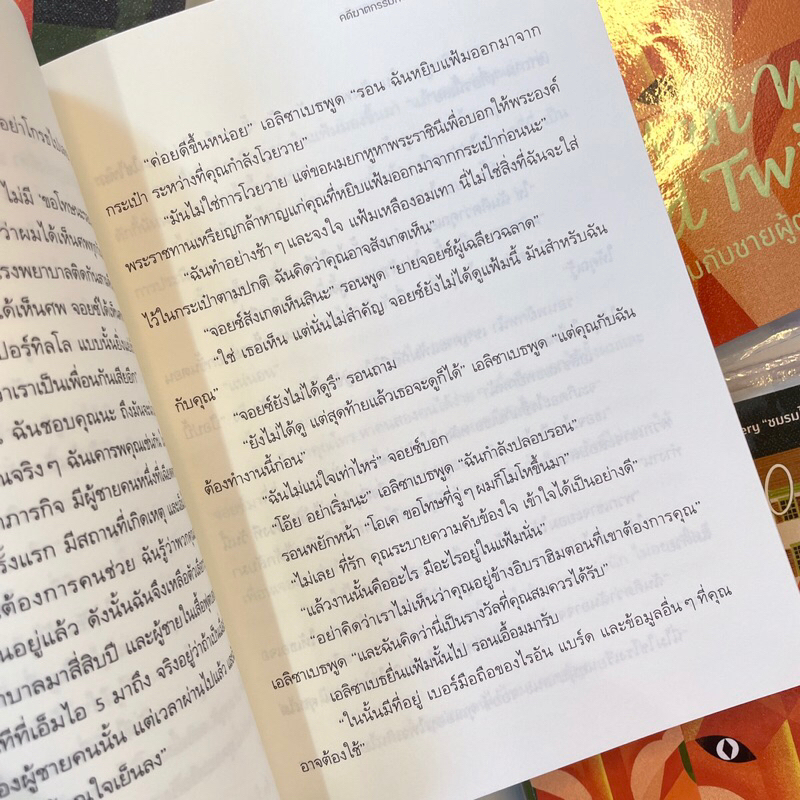 อย่าโกรธไปเลย
ไม่มี ‘ขอโทษนะ
ว่าผมได้เห็นศพทุก
รงพยาบาลติดกันสาม
ได้เห็นศพ จอยซ์ได้
ปอร์ทิลโล แบบนั้น
าเราเป็นเพื่อนกันเสียอีก
ฉันชอบคุณนะ ถึง
นจริง ๆ ฉันเคารพคุณเช่นกัน
าภารกิจ มีผู้ชายคนหนึ่งที่
รั้งแรก มีสถานที่เกิดเหตุ และ
ต้องการคนช่วย ฉันรู้ว่าพวก
นอยู่แล้ว ดังนั้นฉันจึงเหลือตัว
าบาลมาสี่สิบปี และผู้ชายในเสื้อ
ทีที่เอ็มไอ 5 มาถึง จริงอยู่ว่าถ้า
องผู้ชายคนนั้น แต่เวลาผ่านไปแล้ว
ณใจเย็นลง”
คดีฆาตกรรม
“ค่อยดีขึ้นหน่อย” เอลิซาเบธพูด “รอน ฉันหยิบแฟ้มออกมาจาก
กระเป๋า ระหว่างที่คุณกำลังโวยวาย”
“มันไม่ใช่การโวยวาย แต่ขอผมยกหูหาพระราชินีเพื่อบอกให้พระองค์
พระราชทานเหรียญกล้าหาญแก่คุณที่หยิบแฟ้มออกมาจากกระเป๋าก่อนนะ”
“ฉันทำอย่างช้า ๆ และจงใจ แฟ้มเหลืองอมเทา นี่ไม่ใช่สิ่งที่ฉันจะใส่
ไว้ในกระเป๋าตามปกติ ฉันคิดว่าคุณอาจสังเกตเห็น”
“จอยซ์สังเกตเห็นสินะ” รอนพูด “ยายจอยซ์ผู้เฉลียวฉลาด”
“ใช่ เธอเห็น แต่นั่นไม่สำคัญ จอยซ์ยังไม่ได้ดูแฟ้มนี้ มันสำหรับฉัน
กับคุณ”
“จอยซ์ยังไม่ได้ดูรึ” รอนถาม
“ยังไม่ได้ดู แต่สุดท้ายแล้วเธอจะดูก็ได้” เอลิซาเบธพูด “แต่คุณกับฉัน
ต้องทำงานนี้ก่อน”
“ฉันไม่แน่ใจเท่าไหร่” จอยซ์บอก
“โอ๊ย อย่าเริ่มนะ” เอลิซาเบธพูด “ฉันกำลังปลอบรอน”
รอนพยักหน้า “โอเค ขอโทษที่จู่ ๆ ผมก็โมโหขึ้นมา”
“ไม่เลย ที่รัก คุณระบายความคับข้องใจ เข้าใจได้เป็นอย่างดี”
“แล้วงานนั้นคืออะไร มีอะไรอยู่ในแฟ้มนั่น”
“อย่าคิดว่าเราไม่เห็นว่าคุณอยู่ข้างอิบราฮิมตอนที่เขาต้องการคุณ”
เอลิซาเบธพูด “และฉันคิดว่านี่เป็นรางวัลที่คุณสมควรได้รับ”
เอลิซาเบธยื่นแฟ้มนั้นไป รอนเอื้อมมารับ
“ในนั้นมีที่อยู่ เบอร์มือถือของไรอัน แบร์ด และข้อมูลอื่น ๆ ที่คุณ
อาจต้องใช้”
กับชายผู้
ery “ชมรม